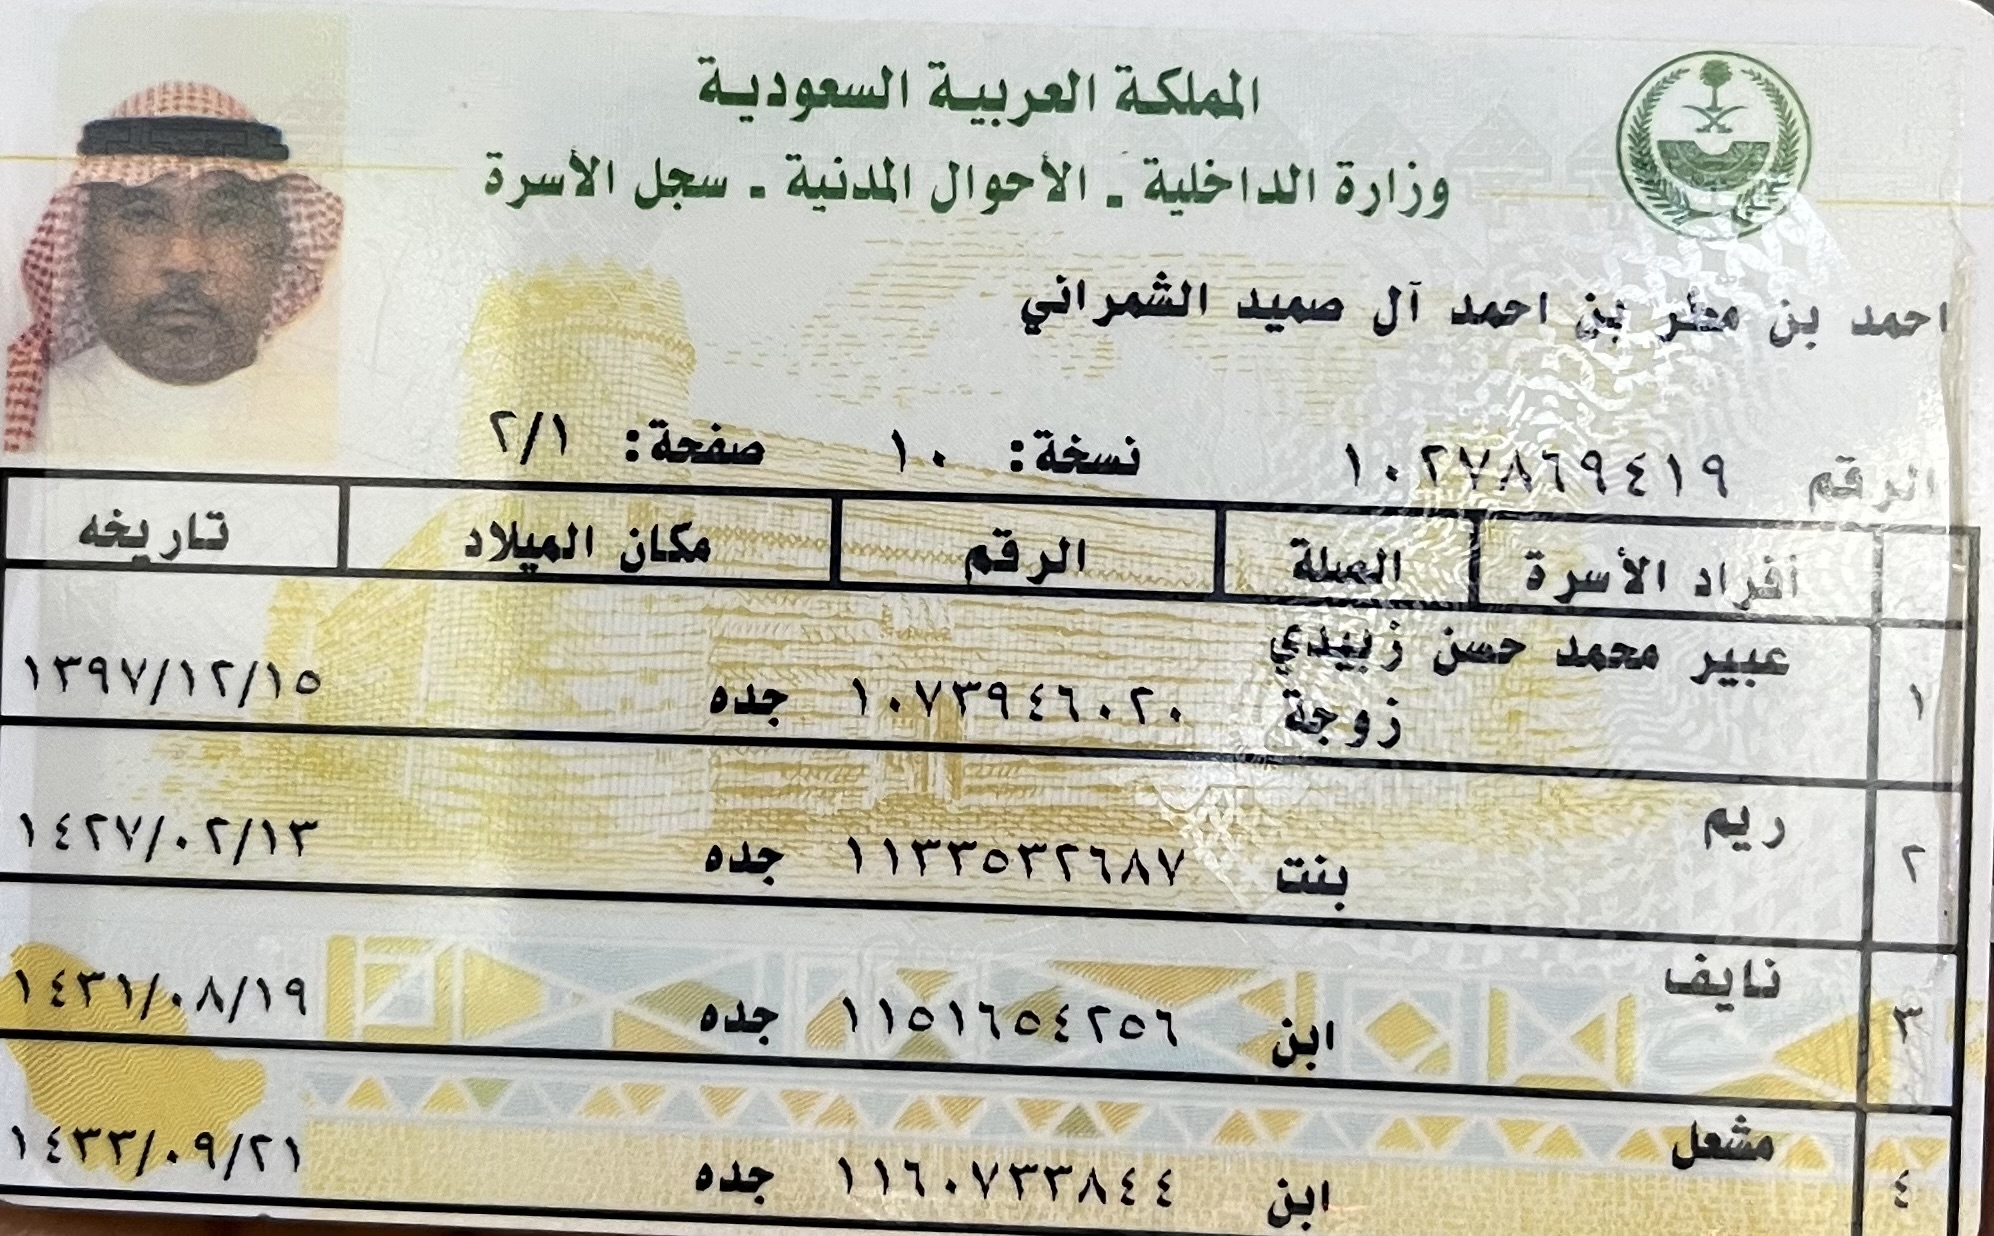 المملكة العربية السعودية
وزارة الداخلية . الأحوال المدنية . سجل الأسرة
احمد بن مطر بن احمد آل صميد الشمراني
الرقم ١٠٢٧٨٦٩٤١٩ نسخة: ١٠ صفحة: ٢/١
أفراد الأسرة الصلة الرقم مكان الميلاد تاريخه
عبير محمد حسن زبيدي
١ زوجة ١٠٧٣٩٤٦٠٢٠ جده ١٣٩٧/١٢/١٥
ريم
٢ بنت ١١٣٣٥٣٢٦٨٧ جده ١٤٢٧/٠٢/١٣
نايف
٣ ابن ١١٥١٦٥٤٢٥٦ جده ١٤٣١/٠٨/١٩
مشعل
٤ ابن ١١٦٠٧٣٣٨٤٤ جده ١٤٣٣/٠٩/٢١